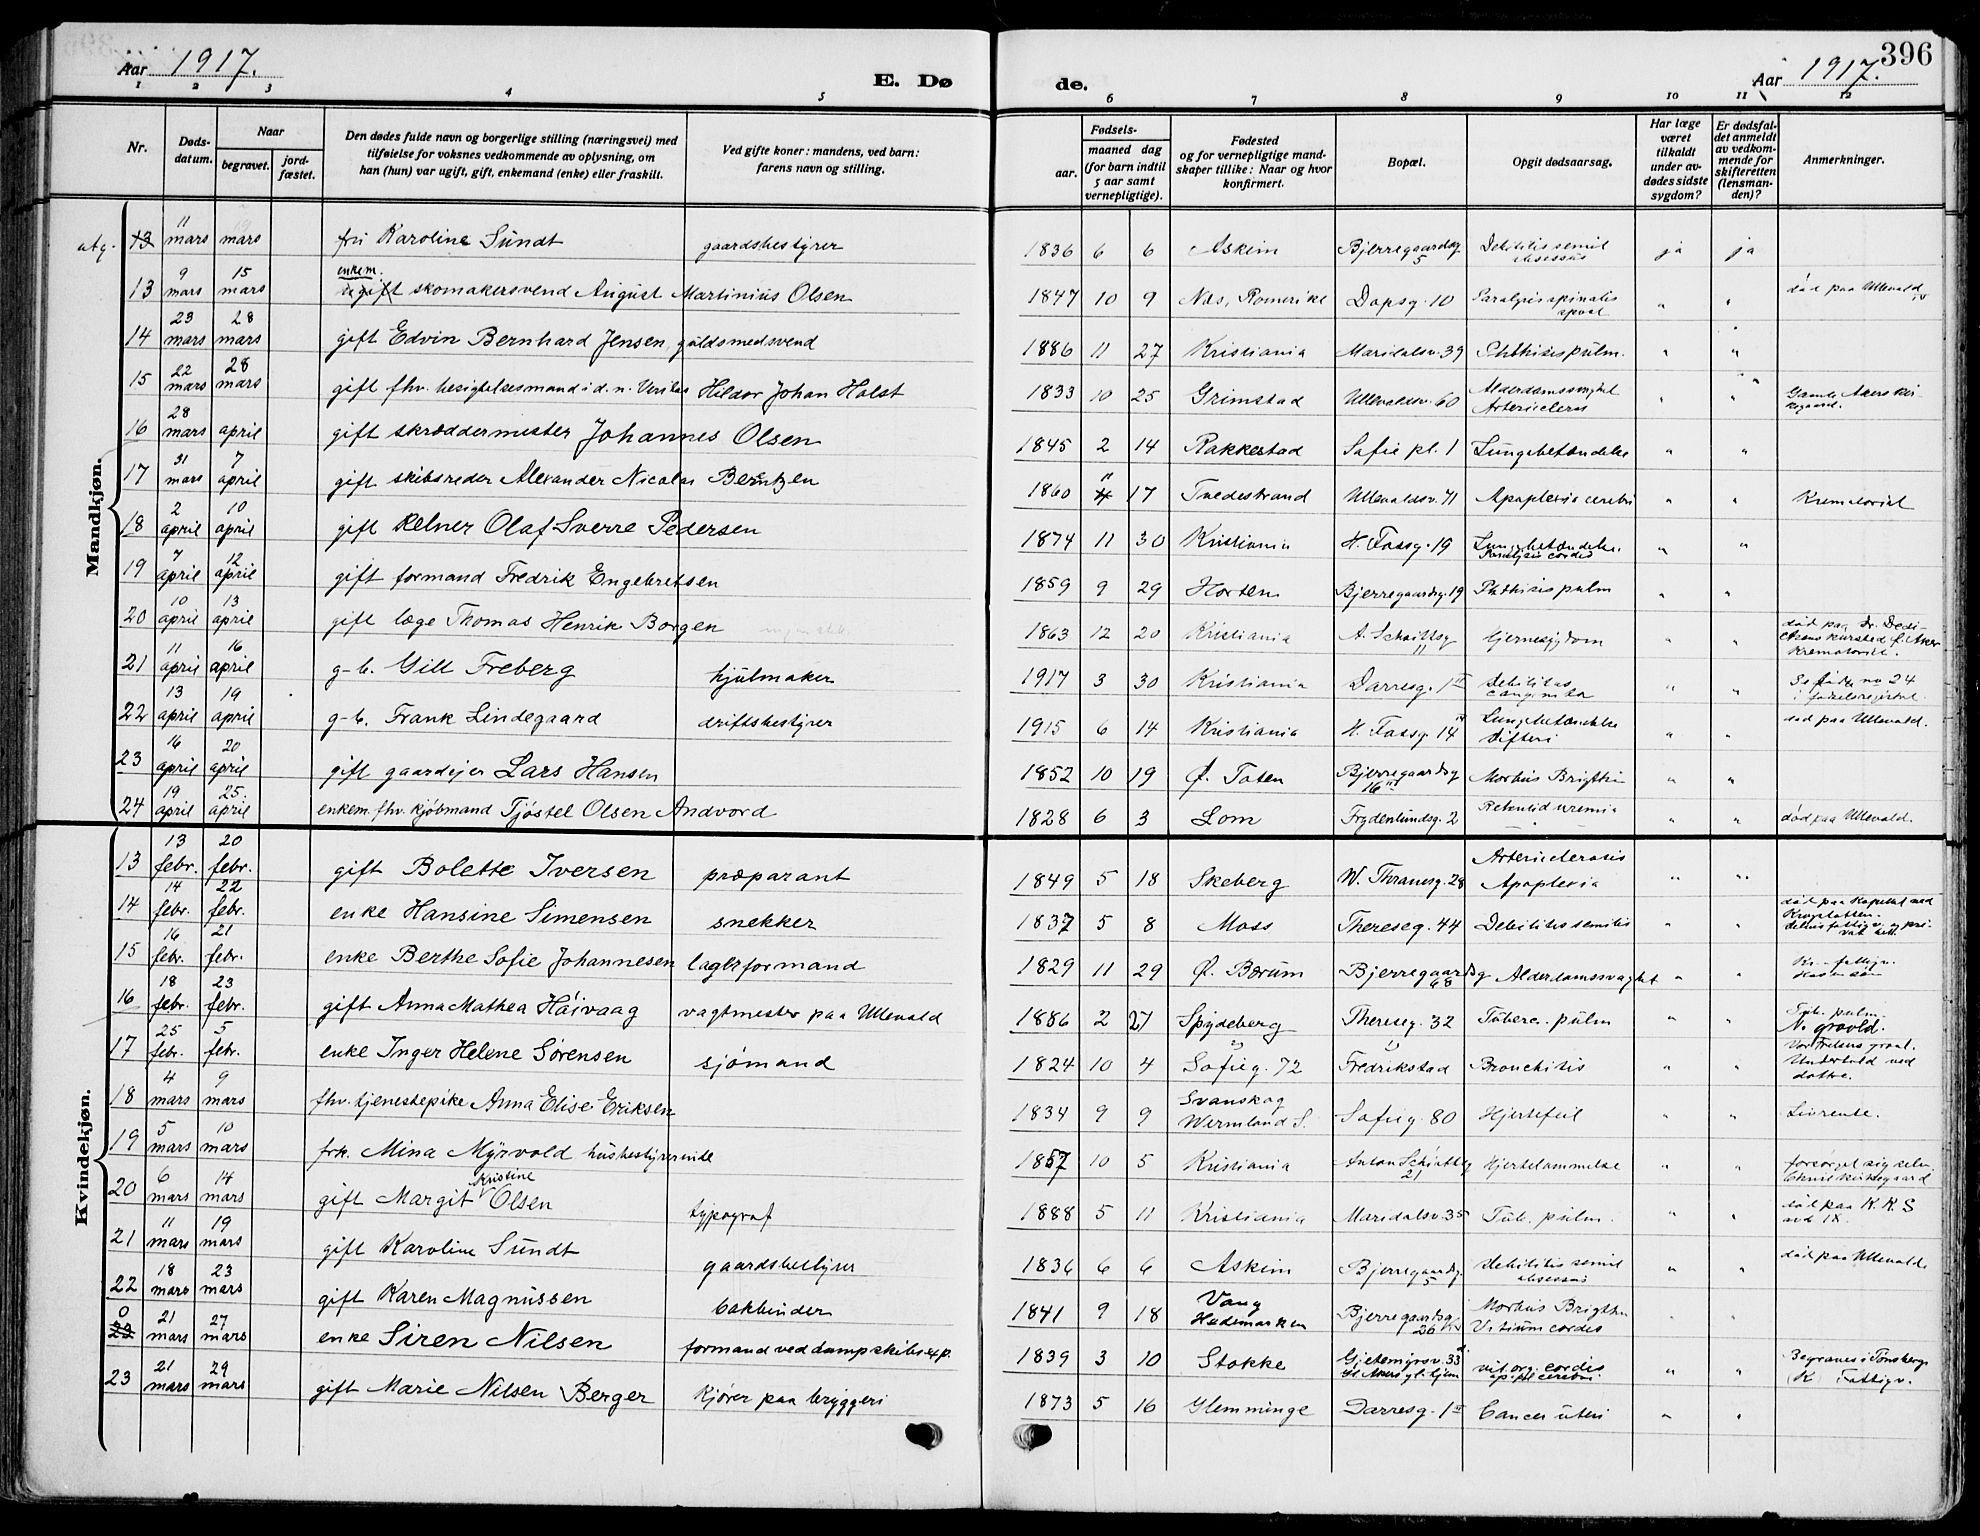 396
Aar 1917.
E. Dø
de.
Aar 1917.
1 2 3 4 5 6 7 8 9 10 11 12
Nr.
Døds-
datum.
Naar
begravet.
jord-
fæstet.
Den dødes fulde navn og borgerlige stilling (næringsvei) med
tilføielse for voksnes vedkommende av oplysning, om
han (hun) var ugift, gift, enkemand (enke) eller fraskilt.
Ved gifte koner: mandens, ved barn:
farens navn og stilling.
Fødsels-
aar.
maaned dag
(for barn indtil
5 aar samt
vernepligtige).
Fødested
og for vernepligtige mand-
skaper tillike: Naar og hvor
konfirmert.
Bopæl.
Opgit dødsaarsag.
Har læge
været
tilkaldt
under av-
dødes sidste
sygdom?
Er dødsfal-
det anmeldt
av vedkom-
mende for
skifteretten
(lensman-
den)?
Anmerkninger.
Mandkjøn.
utg. 13 11 mars mars fru Karoline Sundt gaardsbestyrer 1836 6 6 Askim Bjerregaardsg 5 Debilitis senil abscessus ja ja
13 9 mars 15 mars enkem. ugift skomakersvend August Martinius Olsen 1847 10 9 Næs, Romerike Dopsg. 10 Paralysis spinalis " " död paa Ullevald
14 23 mars 28 mars gift Edvin Bernhard Jensen, guldsmedsvend 1886 11 27 Kristiania Maridalsv. 39 Phthisis pulm. " "
15 22 mars 28 mars gift fhv. besigtelsesmand i d. n. Veritas Hildor Johan Holst 1833 10 25 Grimstad Ullevaldsv. 60 Alderdomssvaghet " " Gamle Akers kir-
kegaard.
16 28 mars april gift skræddermester Johannes Olsen 1845 2 14 Rakkestad Sofie pl. 1 Lungebetændelse " "
17 31 mars 7 april gift skibsreder Alexander Nicolai Berntzen 1860 11 17 Tvedestrand Ullevaldsv. 71 Apoplexia cerebri " " Krematoriet
18 2 april 10 april gift kelner Olaf Sverre Pedersen 1874 11 30 Kristiania H. Fossg. 19 Lungebetændelse. Paralysis cordis " "
19 7 april 12 april gift formand Fredrik Engebretsen 1859 9 29 Horten Bjerregaardsg. 19 Phthisis pulm " "
20 10 april 13 april gift læge Thomas Henrik Borgen 1863 12 20 Kristiania A. Schøttsg 11 hjernesygdom " " död paa Dr. Dedi-
chens kursted Ø. Aker
Krematoriet.
21 11 april 16 april g-b. Gill Freberg hjulmaker 1917 3 30 Kristiania Darresg. 1 II debilitas congenita " " Se föde no 24
i fødselsregistret.
22 13 april 19 april g-b. Frank Lindegaard driftsbestyrer 1915 6 14 Kristiania H. Fossg. 14 IV Lungebetændelse difteri " " död paa Ullevald.
23 16 april 20 april gift gaardejer Lars Hansen 1852 10 19 Ø. Toten Bjerregaardsg 16 III Morbus Brigthii " "
24 19 april 25. april enkem. fhv. kjöbmand Tjöstel Olsen Andvord 1828 6 3 Lom Frydenlundsg. 2 Retentio uremia " " död paa Ullevald.
Kvindekjøn.
13 13 febr. 20 febr. gift Bolette Iversen præparant 1849 5 18 Skeberg W. Thranesg. 28 Apoplexia " "
14 14 febr. 22 febr. enke Hansine Simensen snekker 1837 5 8 Moss Thereseg. 44 Debilitis senilis " "
15 16 febr. 21 febr. enke Berthe Sofie Johannesen lagerformand 1829 11 29 Ø. Bærum Bjerregaardsg 68 Alderdomssvaghet " "
16 18 febr. 23 febr. gift Anna Mathea Håivaag vagtmester paa Ullevald 1886 2 27 Spydeberg Thereseg. 32 Tuberc. pulm " " Tub. pulm.
N. gravld.
17 25 febr. 5 febr. enke Inger Helene Sörensen sjömand 1824 10 4 2) Sofieg. 72 1) Fredrikstad Bronchitis " " Vor Frelsers gravl.
Underhold ved
dotre.
18 4 mars 9 mars fhv. tjenestepike Anna Elise Eriksen 1834 9 9 Svanskog Wermland S. Sofieg. 80 Hjertefeil " " Livrente.
19 5 mars 10 mars frk. Mina Myrvold husbestyrerinde 1857 10 5 Kristiania Anton Schiøttsg 21 Hjertelammelse " " forsörget sig selv.
20 6 mars 14 mars gift Margit Kristine Olsen typograf 1888 5 11 Kristiania Maridalsv. 35 Tub. pulm. " " död paa K. K. S
avd IX.
21 11 mars 19 mars gift Karoline Sundt gaardsbestyrer 1836 6 6 Askim Bjerregaardsg. 5 debilitis senil abscessus " " död paa Ullevald
22 18 mars 23 mars gift Karen Magnussen bokbinder 1841 9 18 Vang Hedemarken Bjerregaardsg 26 Morbus Brigthii Vitium cordis
0 22 21 mars 27 mars enke Siren Nilsen formand ved dampskibsexp. 1839 3 10 Stokke Gjetemyrsv. 33 Gl. Akers gl. hjem vit. org. cordis apopl. cerebri. " " Begraves i Tønsberg
(K) Fattigv.
23 21 mars 29 mars gift Marie Nilsen Berger kjörer paa bryggeri 1873 5 16 Glemminge Darresg. 1 II Cancer uteri " "